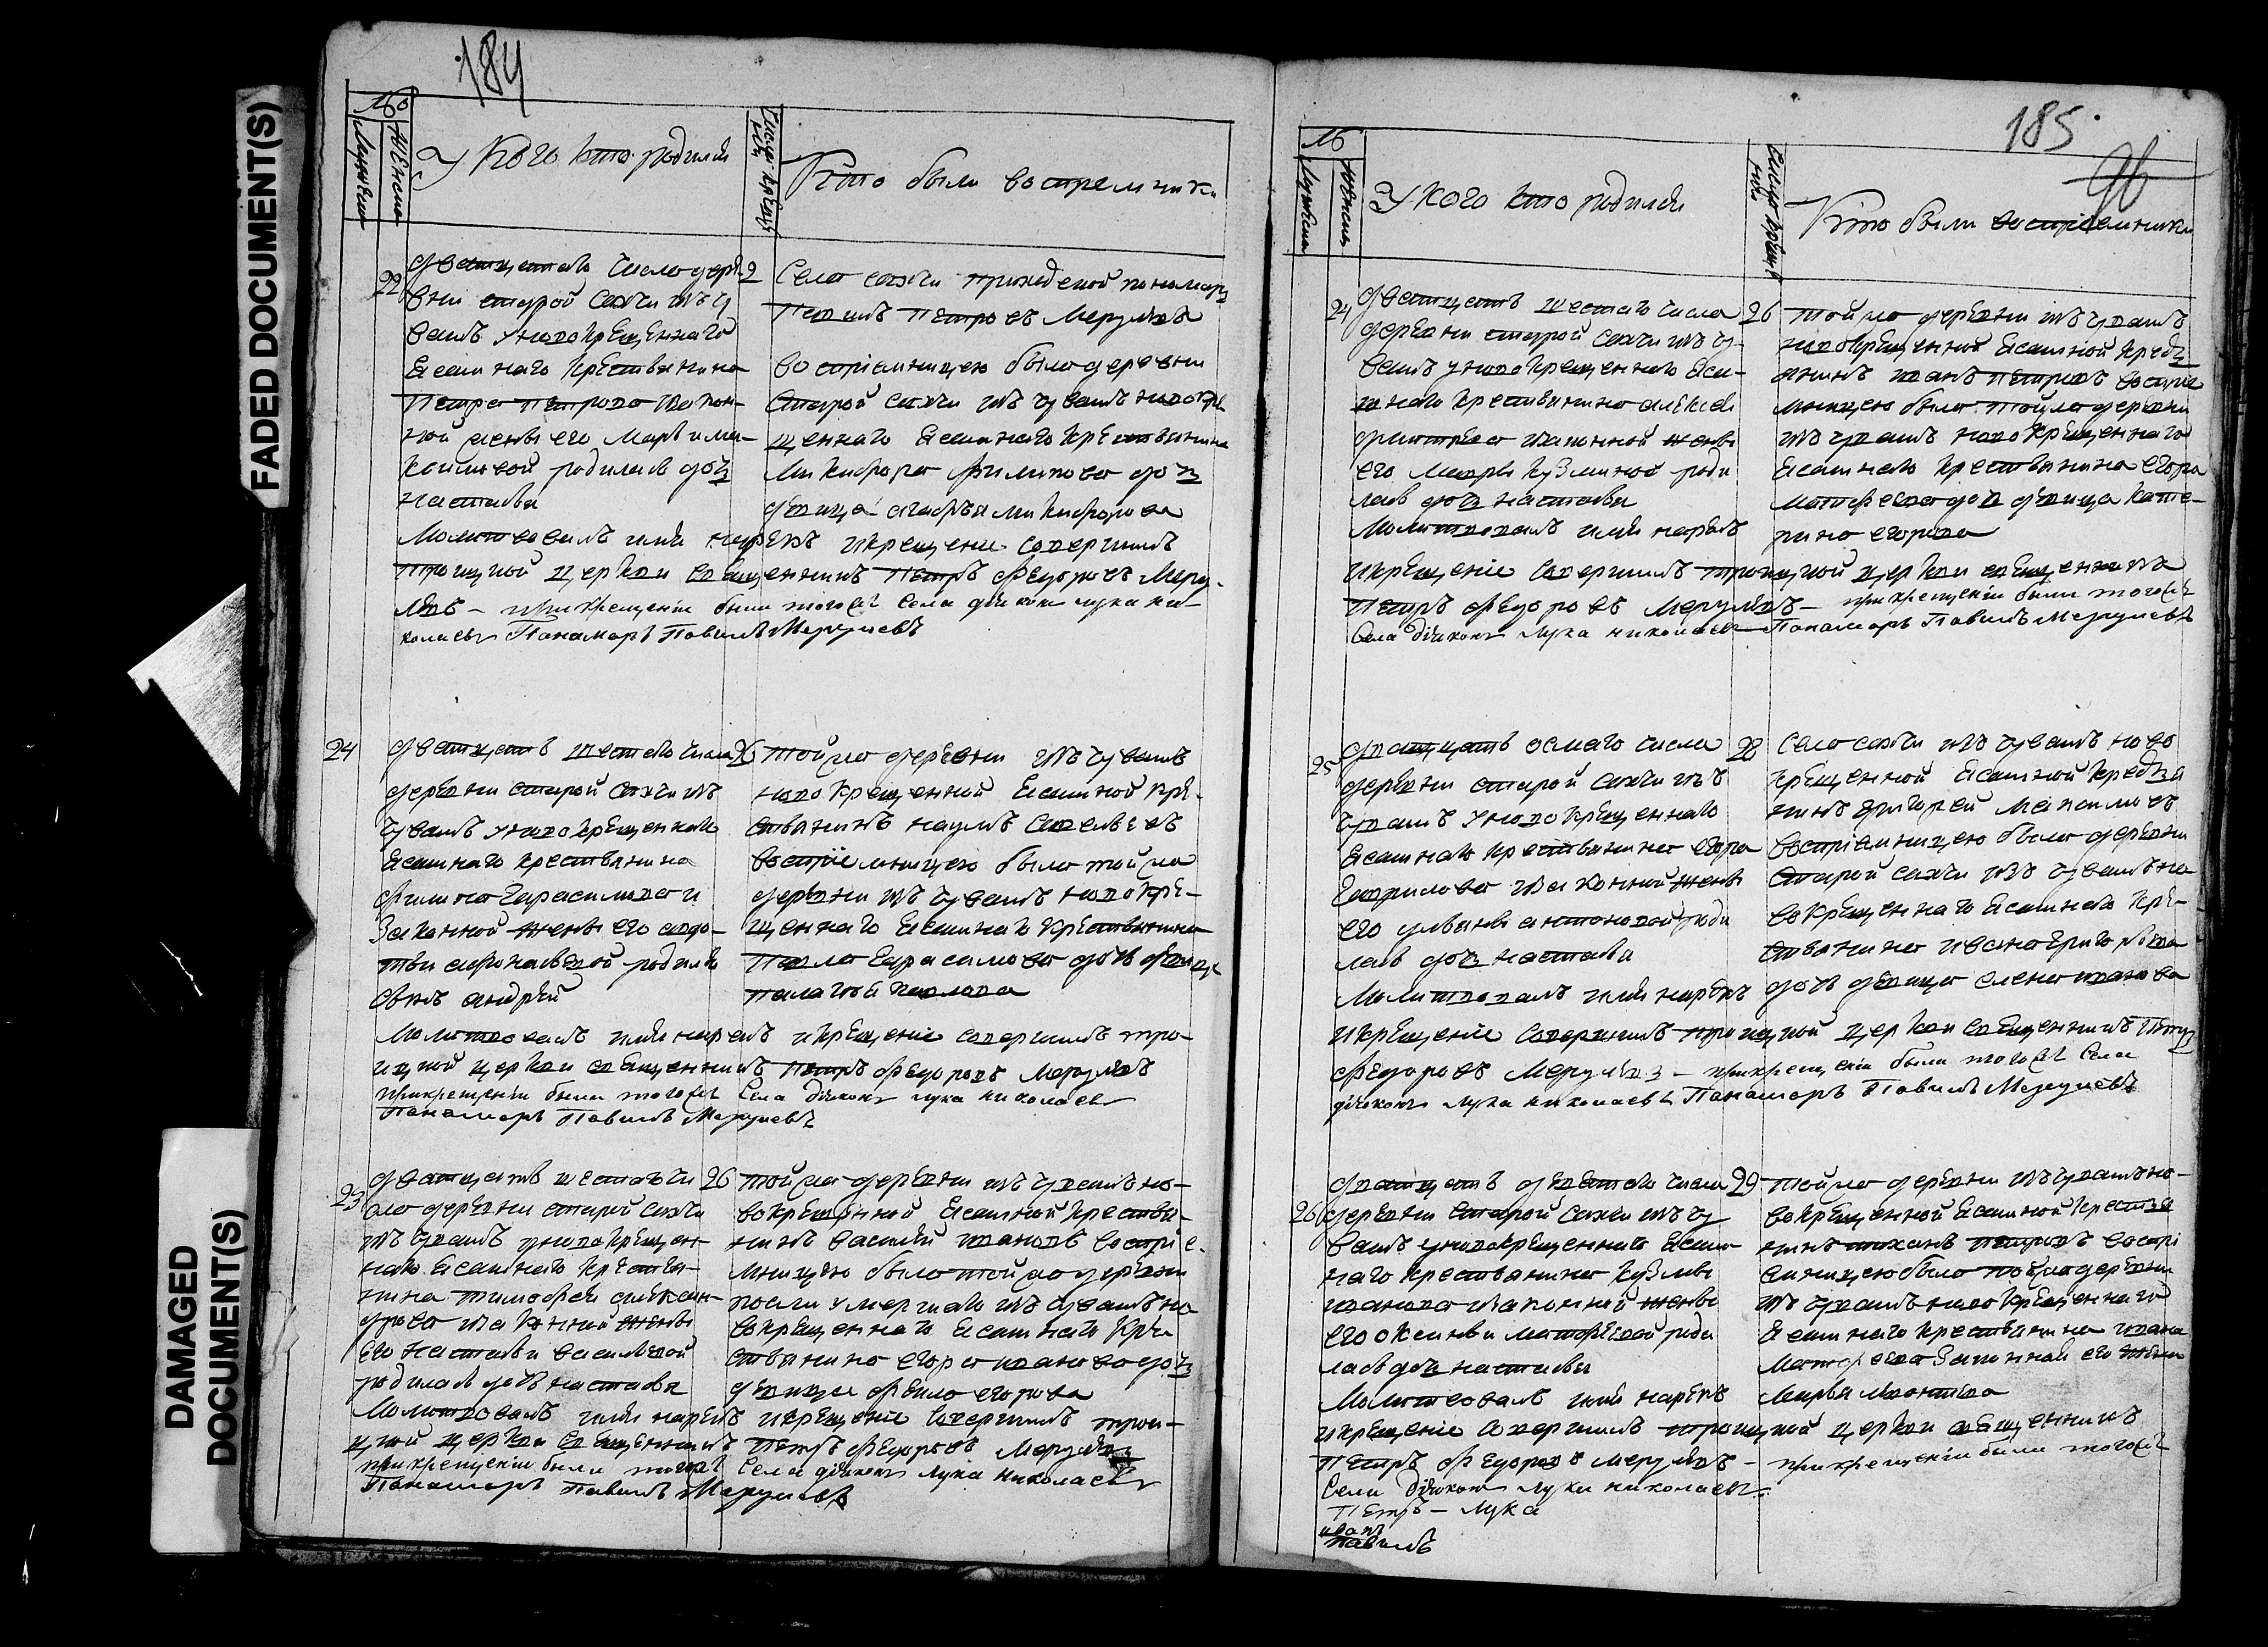 FADED DOCUMENT(S)
DAMAGED
DOCUMENT(S)
184
№
Мужеска
Женска
У кого кто родился
Число крещения
Кто были восприемники
22
дватцатаго числа дере
вни старой сахчи изъ чу
вашъ у новокрещеннаго
ясашнаго крестьянина
Петра Петрова
ной жены его Марьи ма
ксимовой родилась дочь
настасья
2
Села сахчи приходской пономарь
Павилъ Петровъ Мерулевъ
восприемницею была деревни
Старой сахчи изъ чувашъ новокре
щеннаго ясашнаго крестьянина
Микифора Филипова дочь
девица Микифорова
Молитвовалъ имя нарекъ и крещение совершилъ
троицкой церкви священникъ Петръ Федоровъ Меру
левъ - при крещении были того же села дьяконъ лука ни
колаевъ Панамарь Павилъ Мерулевъ
24
дватцать шестаго числа
деревни старой сахчи изъ
чувашъ у новокрещеннаго
ясашнаго крестьянина
Филипа Гарасимова и
законной жены его авдо
тьи афонасьевой родился
сынъ андрей
26
той же деревни изъ чувашъ
новокрещенной ясашной кре
стьянинъ наумъ савельевъ
восприемницею была той же
деревни изъ чувашъ новокре
щеннаго ясашнаго крестьянина
Павла Гарасимова дочь девица
палагея павлова
Молитвовалъ имя нарекъ и крещение совершилъ тро
ицкой церкви священникъ Петръ Федоровъ Мерулевъ
при крещении были того же Села дьяконъ лука николаевъ
Панамарь Павилъ Мерулевъ
23
дватцать шестаго чи
сла деревни старой сахчи
изъ чувашъ у новокрещен
наго ясашнаго крестья
нина тимофея алексан
дрова и законной жены
его настасьи васильевой
родилась дочь настасья
26
той же деревни изъ чувашъ но
вокрещенной ясашной крестья
нинъ василей ивановъ восприе
мницею была той же деревни
после умершаго изъ чувашъ но
вокрещеннаго ясашнаго кре
стьянина егора иванова дочь
девица Фекла егорова
Молитвовалъ имя нарекъ и крещение совершилъ трои
цкой церкви священникъ Петръ Федоровъ Мерулевъ
при крещении были того же Села дьяконъ лука николаевъ
Панамарь Павилъ Мерулевъ
185
96
№
Мужеска
Женска
У кого кто родился
Число крещения
Кто были восприемники
24
дватцать шестаго числа
деревни старой сахчи изъ чу
вашъ у новокрещеннаго яса
шнаго крестьянина алексея
дмитриева и законной жены
его Марьи кузминой роди
лась дочь настасья
26
той же деревни изъ чувашъ
новокрещенной ясашной кресть
янинъ иванъ петровъ восприе
мницею была той же деревни
изъ чувашъ новокрещеннаго
ясашнаго крестьянина егора
матфеева дочь девица кате
рина егорова
Молитвовалъ имя нарекъ
и крещение совершилъ троицкой церкви священникъ
Петръ Федоровъ Мерулевъ - при крещении были того же
Села дьяконъ лука николаевъ Панамарь Павилъ Мерулевъ
25
дватцать осмаго числа
деревни старой сахчи изъ
чувашъ у новокрещеннаго
ясашнаго крестьянина егора
Гаврилова и законной жены
его ульяны антоновой роди
лась дочь настасья
28
Села сахчи изъ чувашъ ново
крещенной ясашной крестья
нинъ григорей максимовъ
восприемницею была деревни
Старой сахчи изъ чувашъ но
вокрещеннаго ясашнаго кре
стьянина ивана григорьева
дочь девица елена иванова
Молитвовалъ имя нарекъ
и крещение совершилъ троицкой церкви священникъ Петръ
Федоровъ Мерулевъ - при крещении были того же Села
дьяконъ лука николаевъ Панамарь Павилъ Мерулевъ
26
дватцать девятаго числа
деревни старой сахчи изъ чу
вашъ у новокрещеннаго ясаш
наго крестьянина кузмы
иванова и законной жены
его оксиньи матфеевой роди
лась дочь настасья
29
той же деревни изъ чувашъ но
вокрещенной ясашной крестья
нинъ петровъ воспри
емницею была той же деревни
изъ чувашъ новокрещеннаго
ясашнаго крестьянина ивана
матфеева законная его жена
Марья
Молитвовалъ имя нарекъ
и крещение совершилъ троицкой церкви священникъ
Петръ Федоровъ Мерулевъ - при крещении были того же
Села дьяконъ лука николаевъ
Петръ - Лука
иванъ
Павилъ